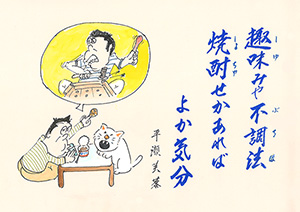 趣味みや不調法
焼酎せかあれば
よか気分
平瀬